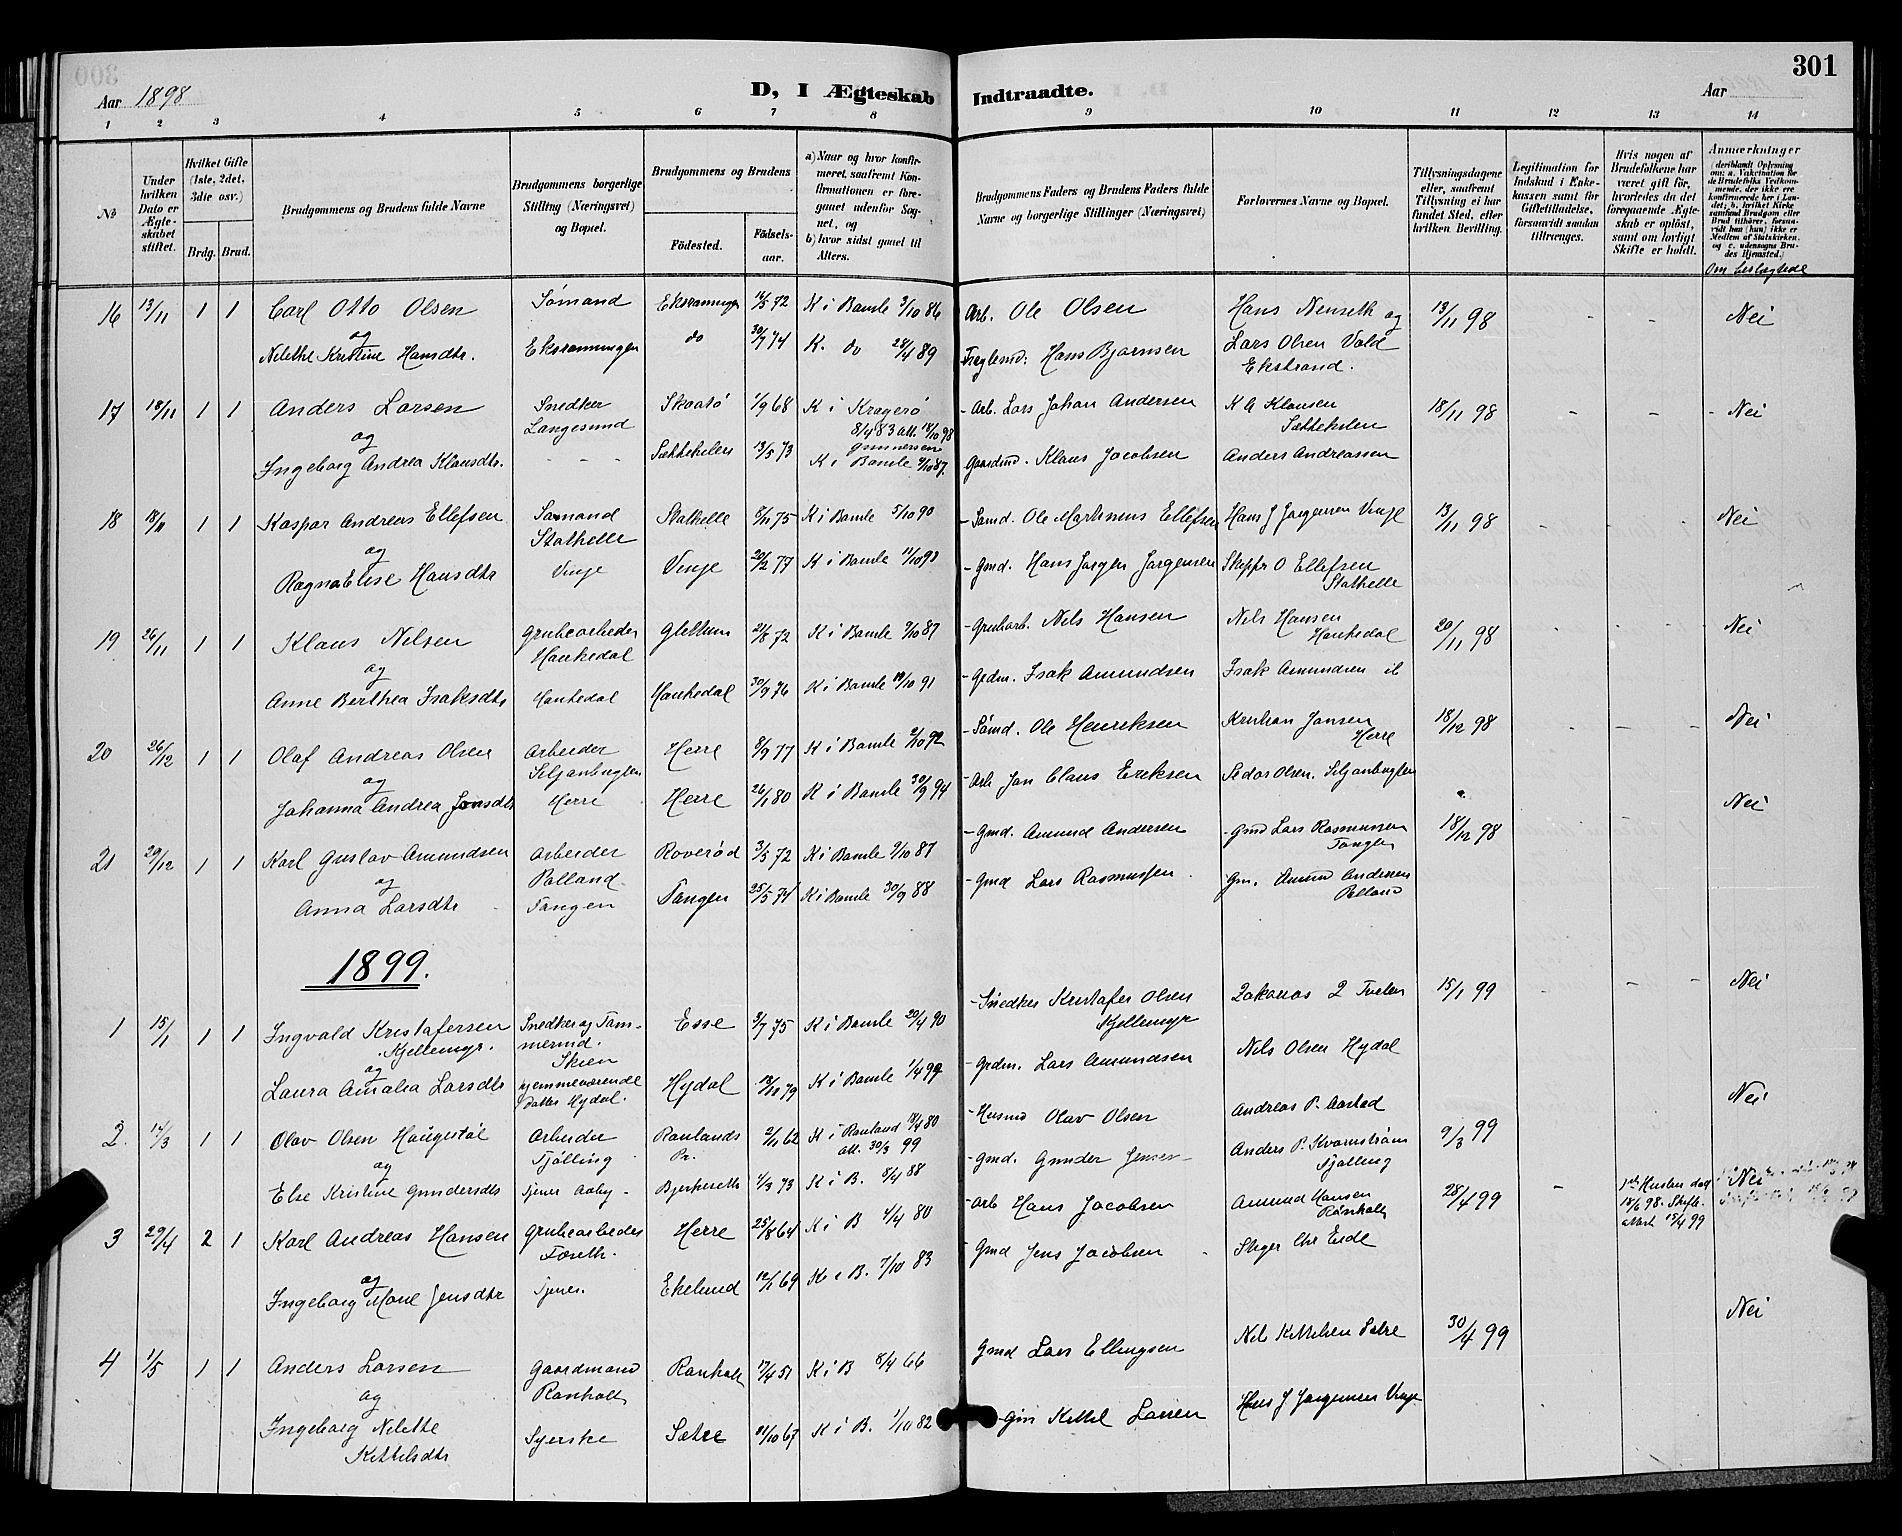 301
Aar 1898
D, I Ægteskab Indtraadte.
Aar
1 2 3 4 5 6 7 8 9 10 11 12 13 14
No
Under hvilken Dato er Ægteskabet stiftet.
Hvilket Gifte (1ste, 2det, 3die osv.)
Brdg. Brud.
Brudgommens og Brudens fulde Navne
Brudgommens borgerlige Stilling (Næringsvei) og Bopæl.
Brudgommens og Brudens
Födested.
Födsels-aar.
a) Naar og hvor konfirmeret, saafremt Konfirmationen er foregaaet udenfor Sognet, og
b) hvor sidst gaaet til Alters.
Brudgommens Faders og Brudens Faders fulde Navne og borgerlige Stillinger (Næringsvei)
Forlovernes Navne og Bopæl.
Tillysningsdagene eller, saafremt Tillysning ei har fundet Sted, efter hvilken Bevilling.
Legitimation for Indskud i Enkekassen samt for Giftetilladelse, forsaavidt saadan tiltrænges.
Hvis nogen af Brudefolkene har været gift før, hvorledes da det foregaaende Ægteskab er oplöst, samt om lovligt Skifte er holdt.
Anmærkninger (deriblandt Oplysning om: a. Vaksination for de Brudefolks Vedkommende, der ikke ere konfirmerede her i Landet; b. hvilket Kirkesamfund Brudgom eller Brud tilhører, forsaavidt han (hun) ikke er Medlem af Statskirken, og c. udensogns Brudes Hjemsted.)
Om beslægtede
16 13/11 1 1 Carl Otto Olsen Sømand 14/5 72 K i Bamle 3/10 86 Arb. Ole Olsen Hans Nenseth og 13/11 98 - - Nei
og
Nilethe Kristine Hansdtr. do 30/7 74 K. do 28/4 89 Hans Bjørnsen Lars Olsen Vold
Ekstrand.
17 18/11 1 1 Anders Larsen Snedker Skaatø 1/9 68 K i Kragerø - Arb. Lars Johan Andersen K A Klausen 18/11 98 - - - Nei
Langesund 8/4 83 att. 18/10 98 Sættekilen
og Gunnersen
Ingeborg Andrea Klausdtr. - - - Sættekilen 13/5 73 K i Bamle 2/10 87. Gaardmd. Klaus Jacobsen Anders Andreassen
18 18/11 1 1 Kaspar Andreas Ellefsen Sømand Stathelle 8/11 75 K i Bamle 5/10 90 - Sømd. Ole Martinius Ellefsen Hans J Jørgensen Vinje 13/11 98 - - Nei
Stathelle
og
Ragna Elise Hansdtr Vinje Vinje 20/2 77 K i Bamle 11/10 91 - Gmd. Hans Jørgen Jørgensen Skippr O Ellefsen
Stathelle
19 26/11 1 1 Klaus Nilsen Grubearbeider 21/8 72 K i Bamle 2/10 87 - Grubarb. Nels Hansen Nils Hansen 20/11 98 - - Nei
Haukedal Haukedal
og
Anne Berthea Isaksdtr Haukedal Haukedal 30/9 76 K i Bamle 10/10 91 - Grdm. Isak Amundsen Isak Amundsen ib
20 26/12 1 1 Olaf Andreas Olsen Arbeider Herre 8/9 77 K i Bamle 2/10 92 - Sømd. Ole Henriksen Kristian Jansen 18/12 98 - - Nei
Siljanbugten Herre
og
Johanna Andrea Jonsdtr Herre Herre 26/1 80 K i Bamle 30/9 94 - Arb Jan Claus Eriksen Sedor Olsen. Siljanbugten
21 29/12 1 1 Karl Gustav Amundsen Arbeider Roverød 3/5 72 K i Bamle 2/10 87 - Gmd. Amund Andersen - Gmd Lars Rasmussen 18/12 98 - Nei
Palland Tangen
og
Anna Larsdtr Tangen Tangen 25/5 74 K i Bamle 30/9 88 - Gmd Lars Rasmussen Gm. Amund Andersen
Palland
1899.
1 15/1 1 1 Ingvald Kristofersen Snedker og Tøm- Esse 2/7 75 K i Bamle 20/4 90 - Snedker Kristofer Olsen Zakarias Z Tveten 15/1 99 - - - Nei
Kjellemyr. mermd. Kjellemyr
Skien
og
Laura Amalia Larsdtr hjemmeværende Hydal 18/11 79 K i Bamle - Grdm. Lars Amundsen Nils Olsen Hydal
Datter Hydal.
2. 14/3 1 1 Olav Olsen Haugestøl Arbeider Raulands 2/1 62 K i Rauland 18/4 80 - Husmd Olav Olsen Andreas P. Aarstad 9/3 99 Nei
Tjølling Pr. att. 30/3 99
og
Else Kristine Gundersdtr Tjener Aaby - Bjerkeseth 1/3 73 K i B. 8/4 88 - Gmd. Gunder Jensen Anders P. Kvarnstrøm
Tjølling
3 29/4 2 1 Karl Andreas Hansen Grubearbeider Herre 25/8 64 K i B 4/4 80 - Arb Hans Jacobsen Amund Hansen 28/4 99 - 1ste Hustru død Nei
Toreth. Rønholt 18/6 98. Skifte-
attest 15/4 99
og
Ingeborg Marie Jensdtr Tjener. Ekelund 12/1 69 K i B. 7/10 83 - Gmd Jens Jacobsen Chr Eide
4 1/5 1 1 Anders Larsen Gaardmand Rønholt 17/4 51 K i B 8/4 66 Gmd Lars Ellingsen Nils Kittilsen Sætre 30/4 99 Nei
Rønholt
og
Ingeborg Nilette Syerske Sætre 11/10 67 K i B. 1/10 82 - Gm Kittil Larsen Hans J Jørgensen Vinje
Kittilsdtr